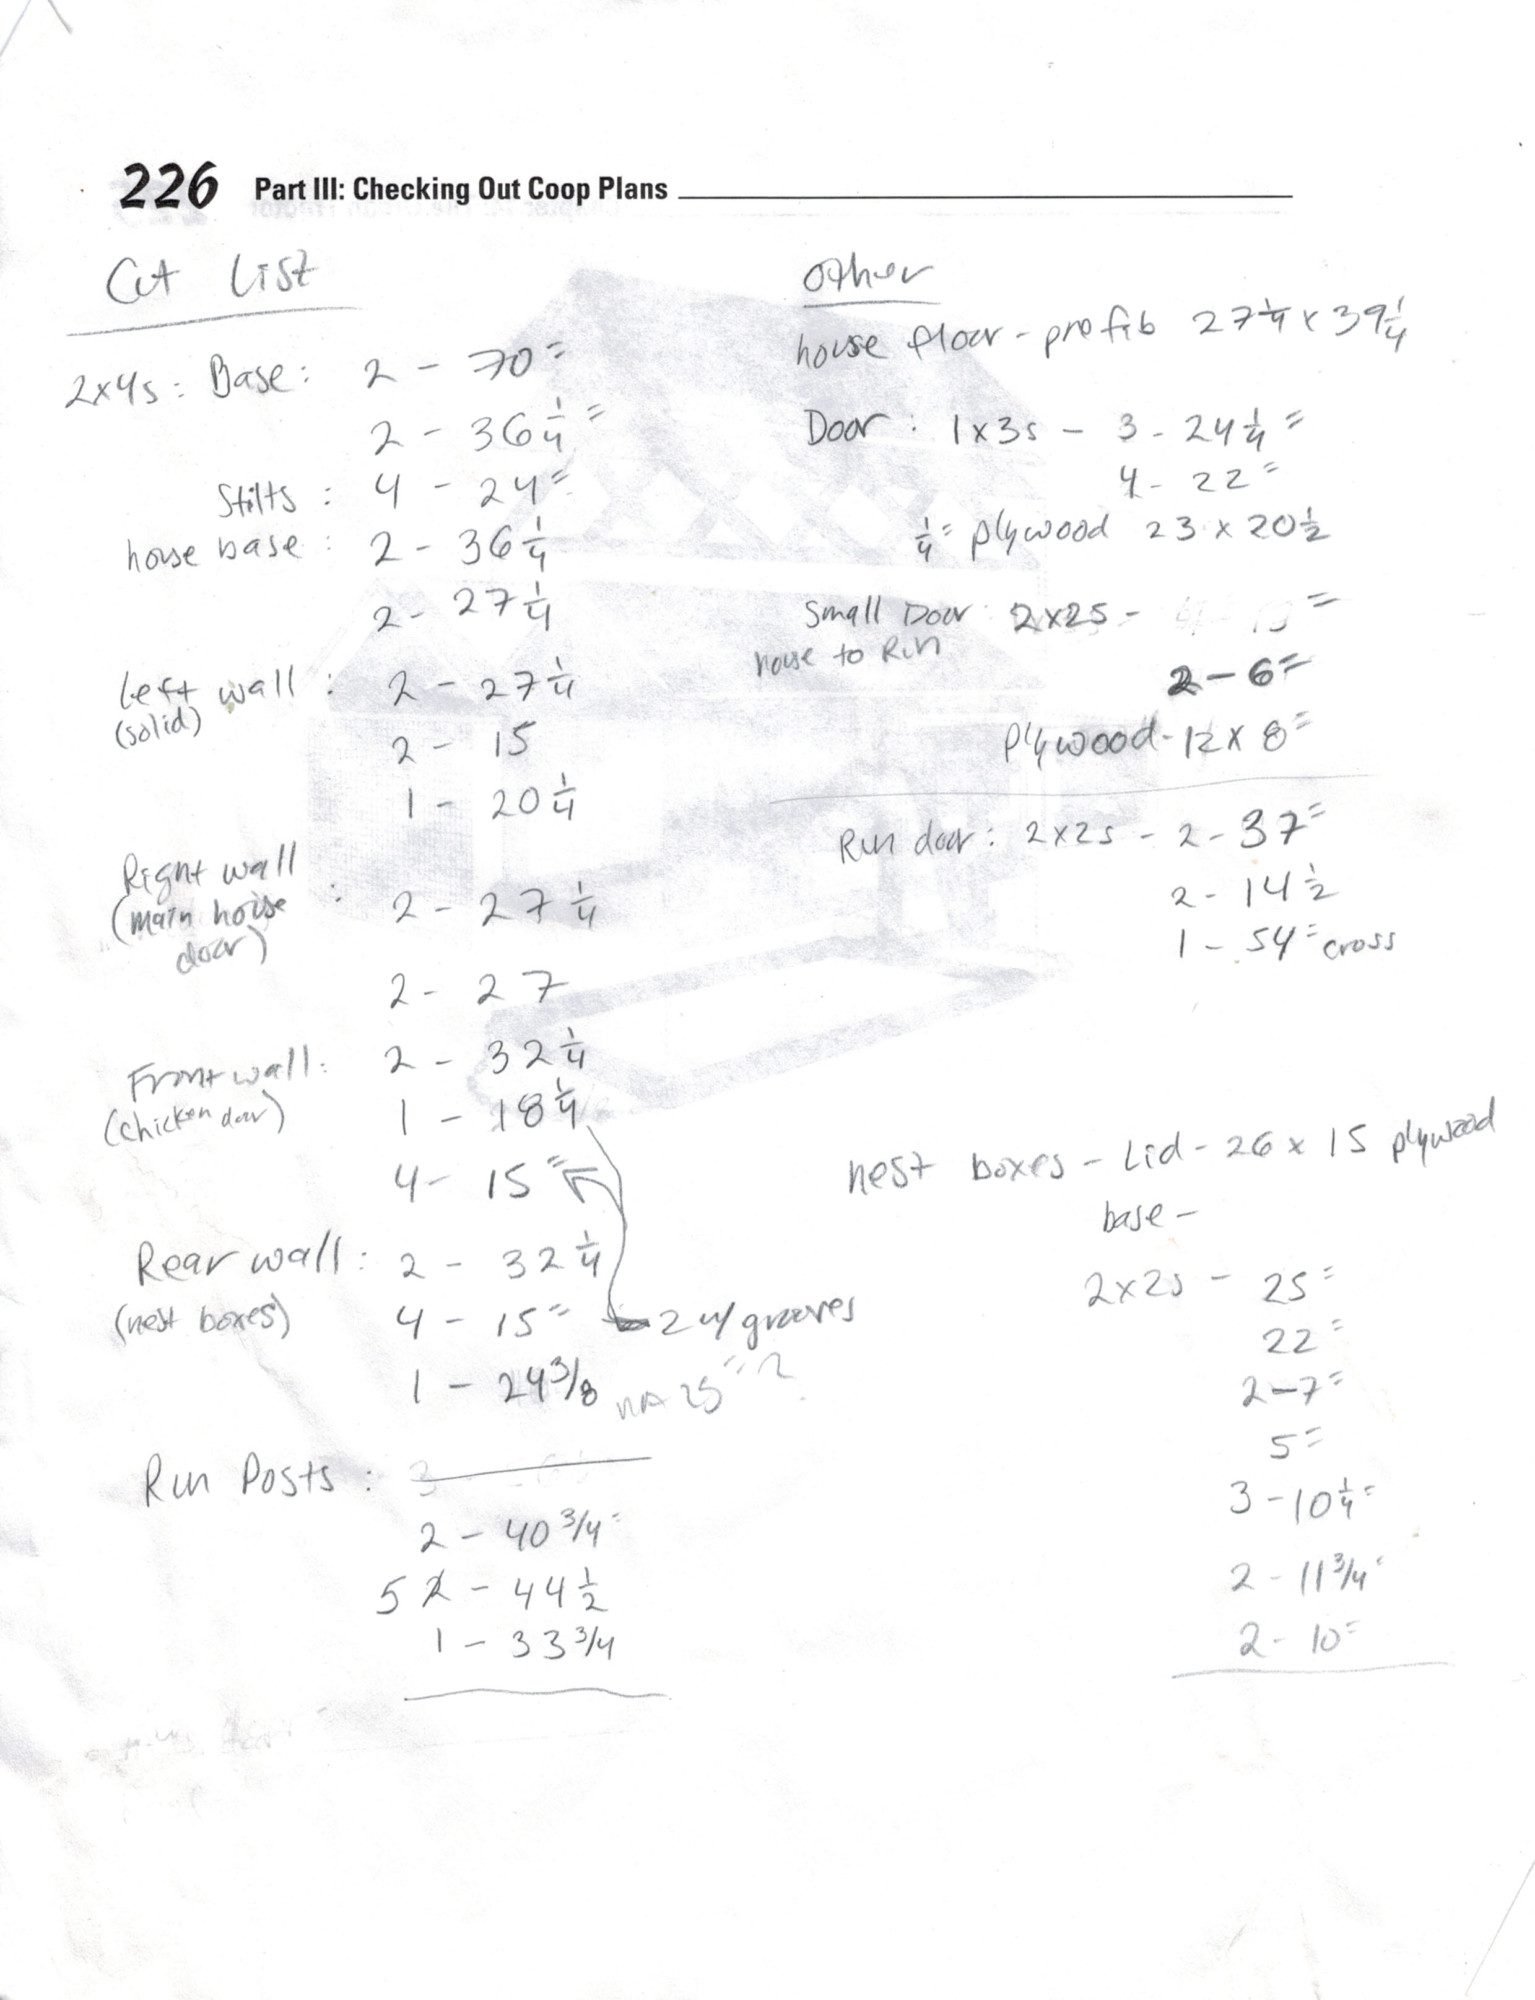 226 Part III: Checking Out Coop Plans
Cut List
2x4s: Base: 2 - 70"
2 - 36 1/4"
Stilts: 4 - 24"
house base: 2 - 36 1/4
2 - 27 1/4
Left wall: 2 - 27 1/4
(solid)
2 - 15
1 - 20 1/4
Right wall
(main house : 2 - 27 1/4
door)
2 - 27
Front wall: 2 - 32 1/4
(chicken door) 1 - 18 1/4
4 - 15"
Rear wall: 2 - 32 1/4
(nest boxes) 4 - 15" 2 w/ grooves
1 - 24 3/8 25"?
Run Posts: 3
2 - 40 3/4"
5 2 - 44 1/2
1 - 33 3/4
Other
house floor - prefib 27 1/4 x 39 1/4
Door: 1x3s - 3 - 24 1/4"
4 - 22"
1/4" plywood 23 x 20 1/2
Small Door: 2x2s -
house to Run
2 - 6"
plywood - 12 x 8"
Run door: 2x2s - 2 - 37"
2 - 14 1/2
1 - 54" cross
nest boxes - Lid - 26 x 15 plywood
base -
2x2s - 25"
22"
2 - 7"
5"
3 - 10 1/4"
2 - 11 3/4"
2 - 10"